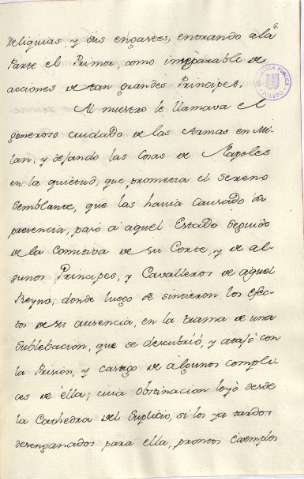 Reliquias y sus engastes, entrando a la
Parte el Primor, como inseparable de
acciones de tan grandes Principes.
Al nuestro le llamava el
generoso cuidado de las Armas en Mi-
lan, y dejando las Cosas de Napoles
en la quietud, que prometia el sereno
semblante, que las havia causado su
presencia, pasó a aquel Estado seguido
de la Comitiva de su Corte, y de al-
gunos Principes, y Cavalleros de aquel
Reyno; donde luego se sintieron los efec-
tos de su ausencia, en la trama de una
Sublebacion, que se descubrió, y atajó con
la Prision, y castigo de algunos complic-
es de ella; cuia Obstinacion leyó desde
la Cathedra del Suplicio, si los ya tardos
desengañados para ella, promos exemplos